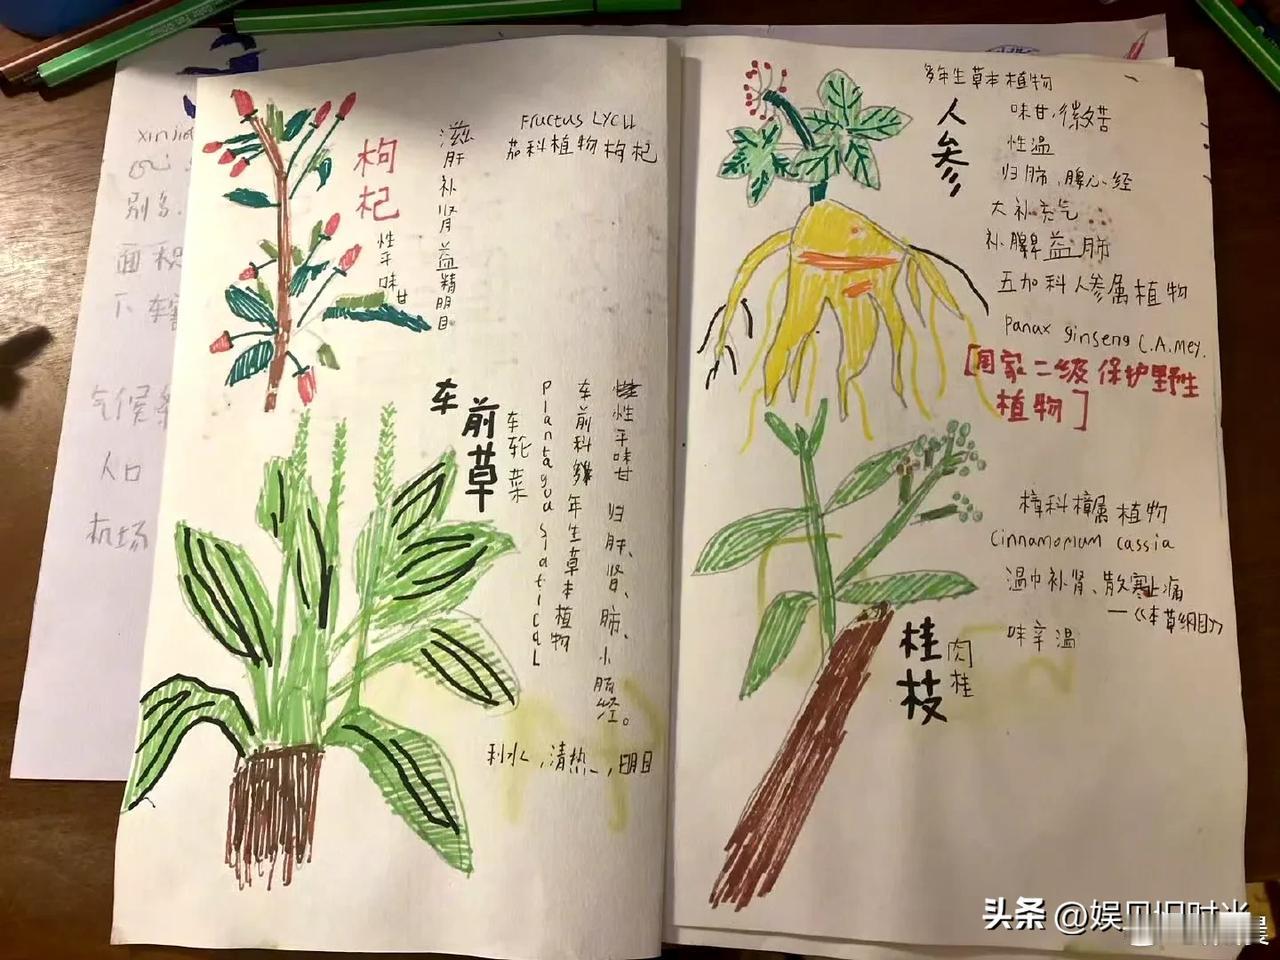 枸杞
性平味甘
滋肝补肾益精明目
Fructus LYCLL
茄科植物枸杞
车前草
车轮菜
Plantagoasiatical
车前科多年生草本植物
性平味甘 归肝、肾、肺、小肠经。
利水,清热,明目
多年生草本植物
人参
味甘,微苦
性温
归肺、脾心经
大补元气
补脾益肺
五加科人参属植物
Panax ginseng C.A.Mey.
[国家二级保护野生
植物]
樟科樟属植物
Cinnamomum cassia
温中补肾、散寒止痛
—《本草纲目》
味辛温
桂枝
肉桂
xinji
别名.
面积
下辖
气候条
人口
机场
头条 @娱贝旧时光